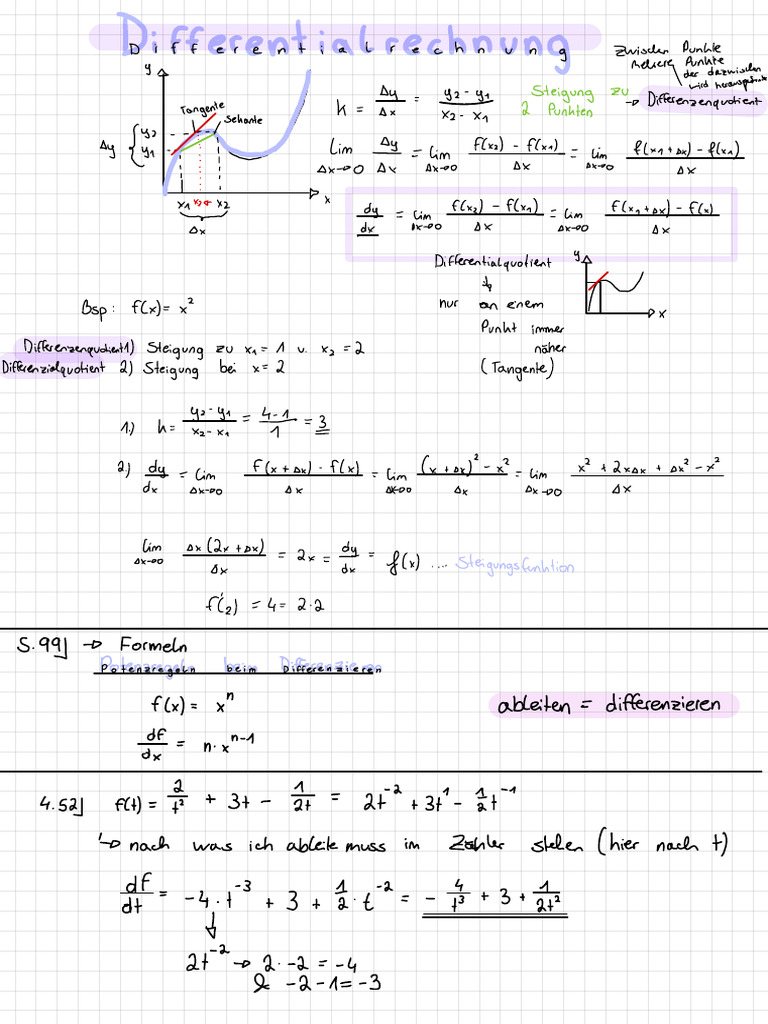 Differentialrechnung
Differentialrechnung
Zwischen Punkte
mehrere Punkte
der dazwischen
wird
→ Differenzenquotient
y
Tangente
Sekante
Δy { y2
y1
x1 x2 x2
x
Δx
k = Δy/Δx = (y2 - y1)/(x2 - x1)
Steigung zu
2 Punkten
lim Δx→0 Δy/Δx = lim Δx→0 (f(x2) - f(x1))/Δx = lim Δx→0 (f(x1 + Δx) - f(x1))/Δx
dy/dx = lim Δx→0 (f(x2) - f(x1))/Δx = lim Δx→0 (f(x1 + Δx) - f(x))/Δx
Differentialquotient
↓
nur an einem
Punkt immer
näher
(Tangente)
y
x
Bsp: f(x) = x²
Differenzenquotient 1) Steigung zu x1 = 1 u. x2 = 2
Differenzialquotient 2) Steigung bei x = 2
1.) k = (y2 - y1)/(x2 - x1) = (4-1)/1 = 3
2.) dy/dx = lim Δx→0 (f(x + Δx) - f(x))/Δx = lim Δx→0 ((x + Δx)² - x²)/Δx = lim Δx→0 (x² + 2xΔx + Δx² - x²)/Δx
lim Δx→0 (Δx(2x + Δx))/Δx = 2x = dy/dx = f(x) .... Steigungsfunktion
f'(2) = 4 = 2·2
S.99] → Formeln
Potenzregeln beim Differenzieren
Potenzregeln beim Differenzieren
f(x) = xⁿ
ableiten = differenzieren
df/dx = n·xⁿ⁻¹
4.52] f(t) = 2/t² + 3t - 1/2t = 2t⁻² + 3t¹ - 1/2 t⁻¹
↳ nach was ich ableite muss im Zähler stehen (hier nach t)
df/dt = -4·t⁻³ + 3 + 1/2·t⁻² = - 4/t³ + 3 + 1/2t²
↓
2t⁻² → 2·-2 = -4
& -2-1 = -3